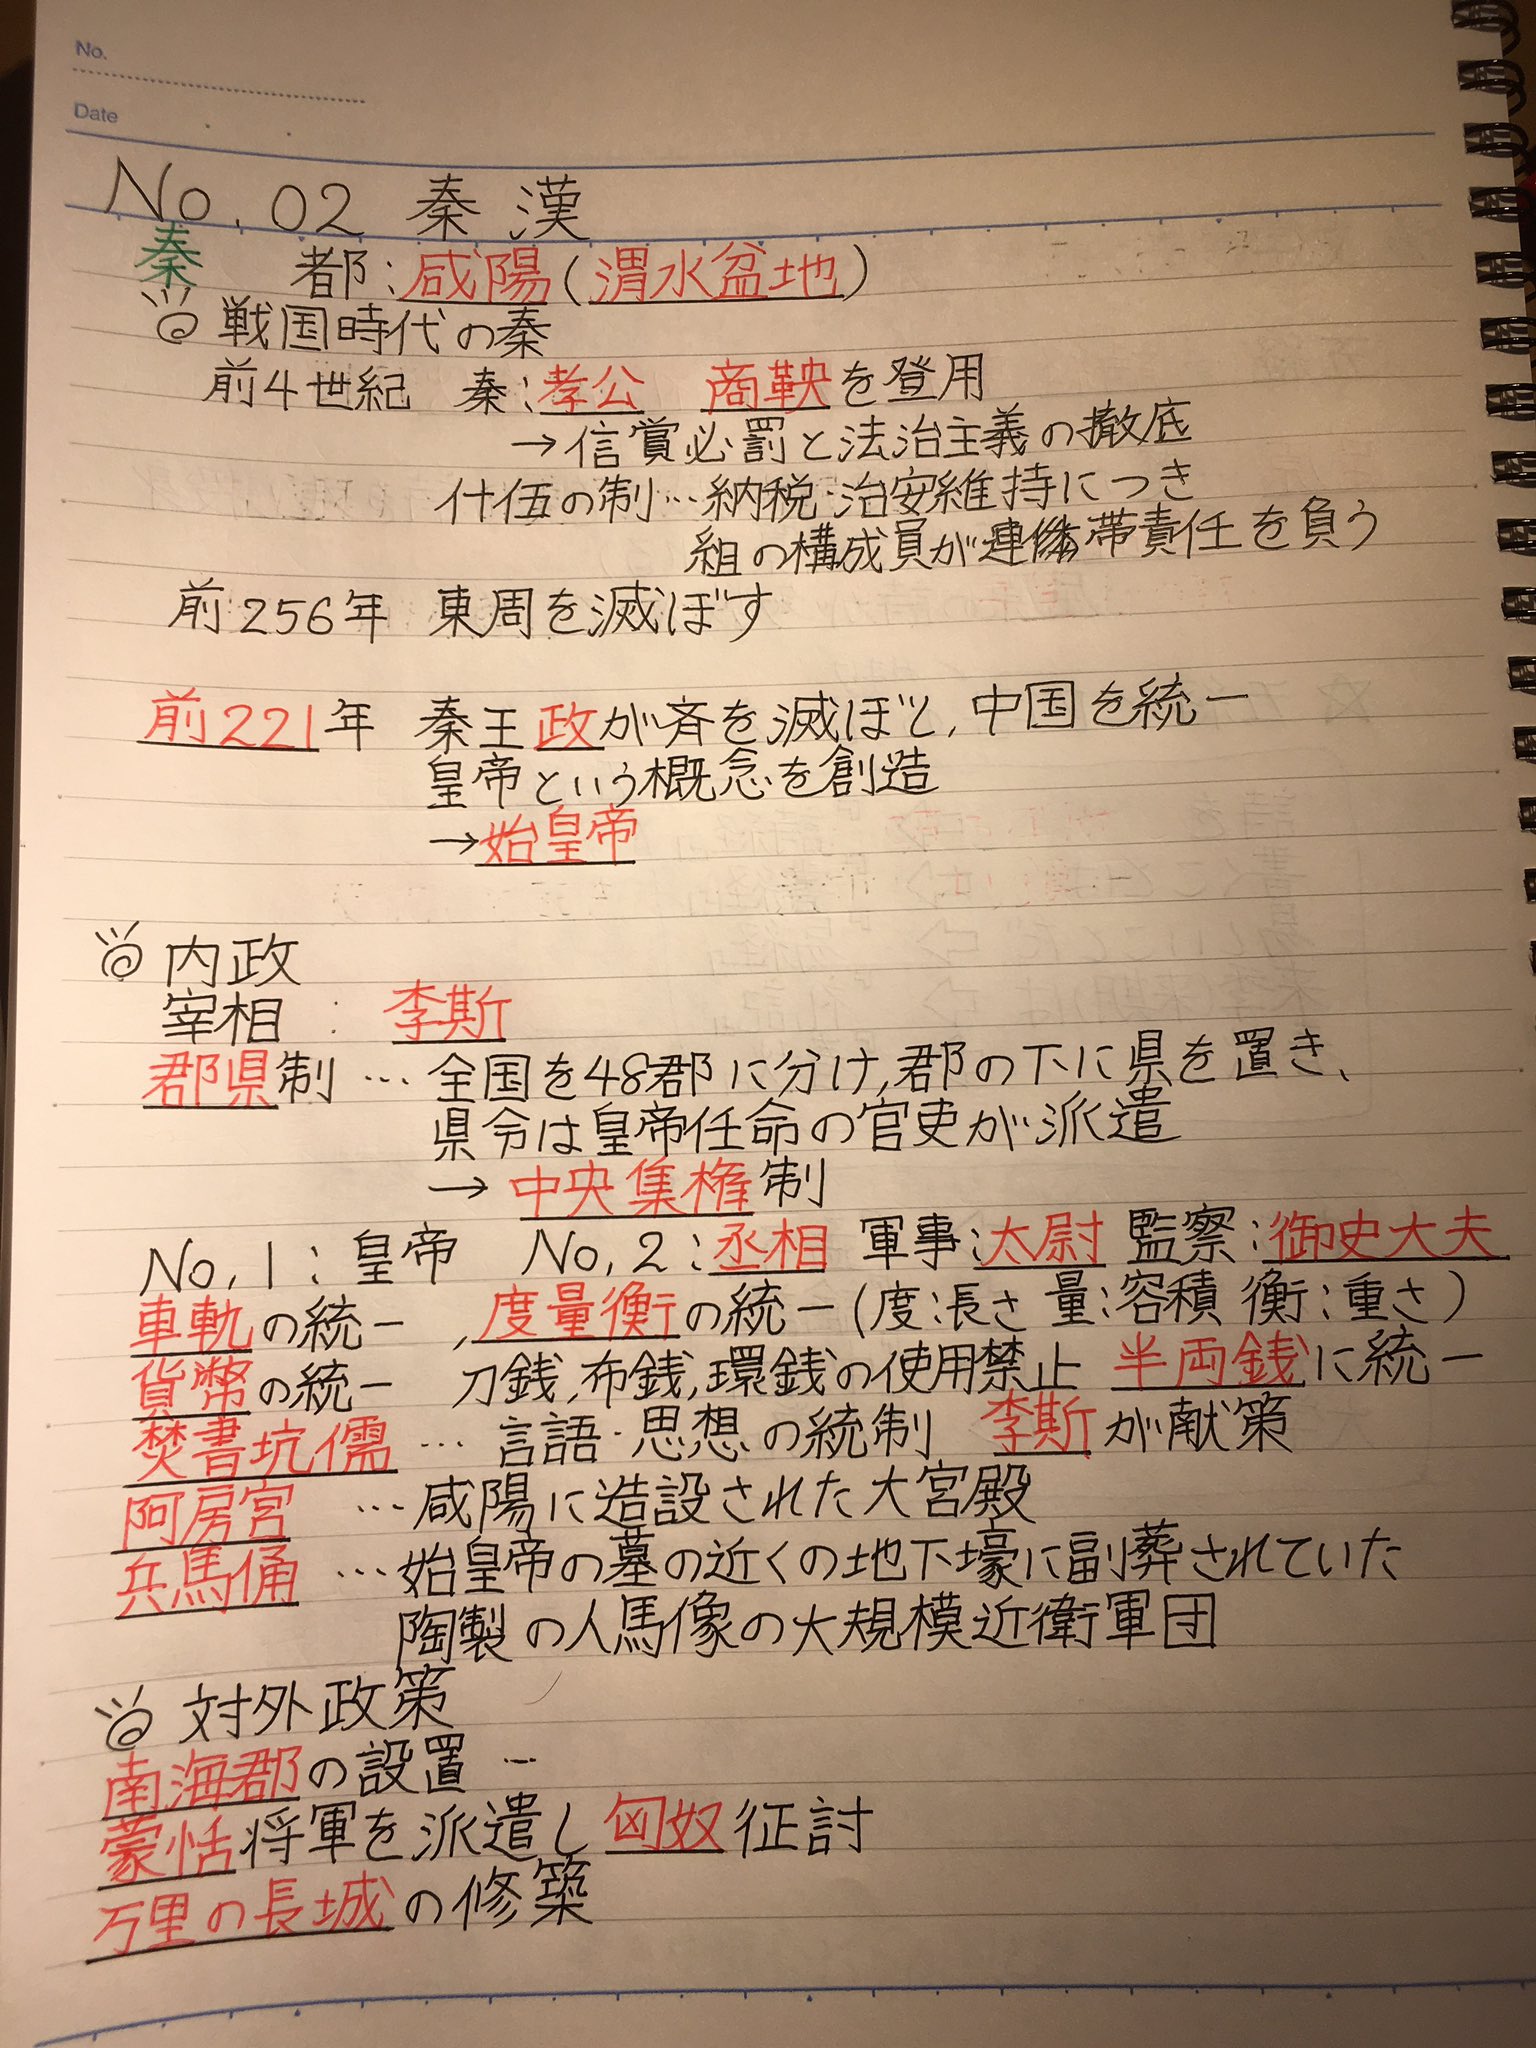 No.
Date
No.02 秦漢
秦 都:咸陽(渭水盆地)
戦国時代の秦
前4世紀 秦:孝公 商鞅を登用
→信賞必罰と法治主義の徹底
什伍の制…納税・治安維持につき
組の構成員が連帯責任を負う
前256年 東周を滅ぼす
前221年 秦王政が斉を滅ぼし,中国を統一
皇帝という概念を創造
→始皇帝
内政
宰相 : 李斯
郡県制 … 全国を48郡に分け,郡の下に県を置き、
県令は皇帝任命の官吏が派遣
→ 中央集権制
No,1 : 皇帝 No,2 : 丞相 軍事:太尉 監察:御史大夫
車軌の統一 ,度量衡の統一(度:長さ 量:容積 衡:重さ)
貨幣の統一 刀銭,布銭,環銭の使用禁止 半両銭に統一
焚書坑儒 … 言語・思想の統制 李斯が献策
阿房宮 …咸陽に造設された大宮殿
兵馬俑 …始皇帝の墓の近くの地下壕に副葬されていた
陶製の人馬像の大規模近衛軍団
対外政策
南海郡の設置 …
蒙恬将軍を派遣し匈奴征討
万里の長城の修築